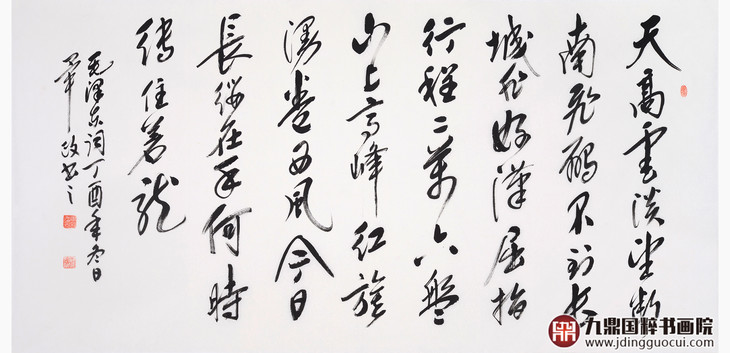 天高雲淡望斷
南飛鴈不到長
城非好漢屈指
行程二萬六盤
山上高峰紅旗
漫卷西風今日
長纓在手何時
縛住蒼龍
毛泽东词丁酉年冬日
书之
九鼎国粹书画院
www.jdingguocui.com